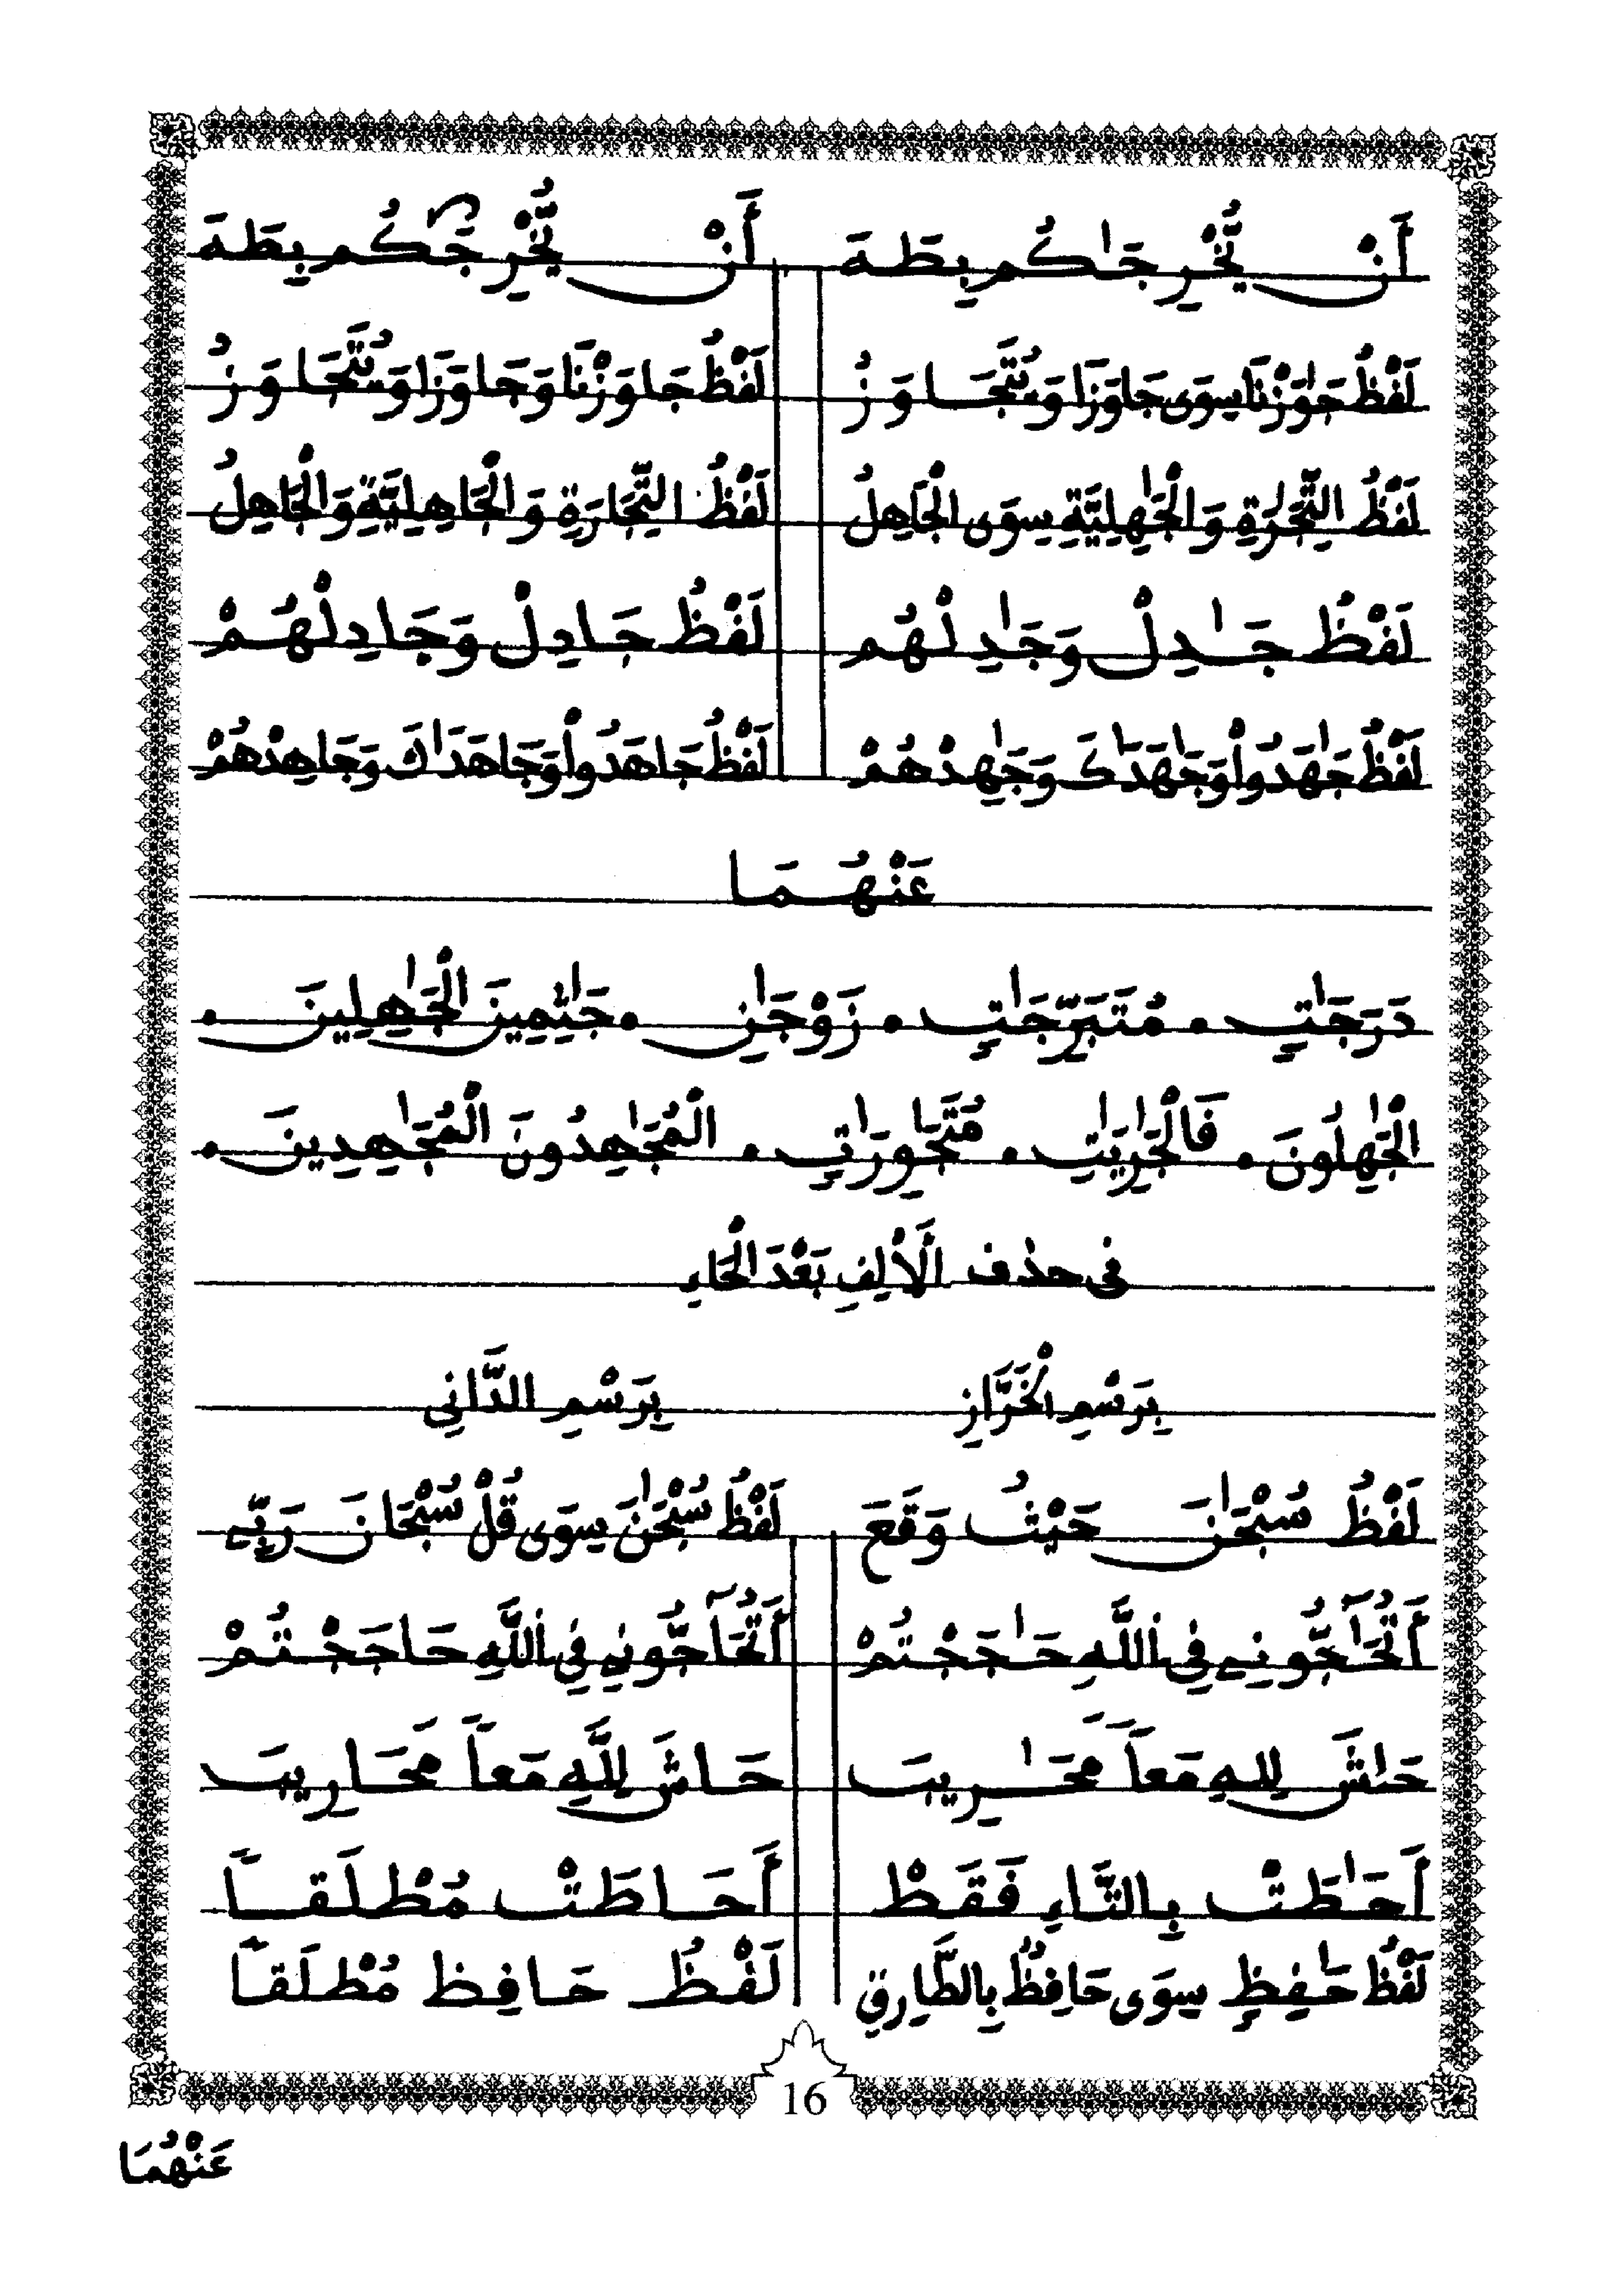 أَنْ يُّخْرِجَٰكُم بِطَهَ أَنْ يُّخْرِجَكُم بِطَهَ
لَفْظُ جَٰوَزْنَا سِوَى جَاوَزَا وَنُتَّجَاوَزُ لَفْظُ جَاوَزْنَا وَجَاوَزَا وَنُتَّجَاوَزُ
لَفْظُ التِّجَٰرَةِ وَالْجَٰهِلِيَّةِ سِوَى الْجَاهِلُ لَفْظُ التِّجَارَةِ وَالْجَاهِلِيَّةِ وَالْجَاهِلُ
لَفْظُ جَٰدِلْ وَجَٰدِلْهُم لَفْظُ جَادِلْ وَجَادِلْهُمْ
لَفْظُ جَٰهَدُواْ وَجَٰهَدَٰكَ وَجَٰهِدْهُمْ لَفْظُ جَاهَدُواْ وَجَاهَدَاكَ وَجَاهِدْهُمْ
عَنْهُمَا
دَرَجَٰتٍ • مُتَبَرِّجَٰتٍ • زَوْجَٰنِ • جَٰثِمِينَ الْجَٰهِلِينَ •
الْجَٰهِلُونَ • فَالْجَٰرِيَٰتِ • مُتَجَٰوِرَٰتٍ • الْمُجَٰهِدُونَ الْمُجَٰهِدِينَ •
فى حذف الَألِفِ بَعْدَ الْحَاءِ
بِرَسْمِ الْخَرَّازِ بِرَسْمِ الدَّانِي
لَفْظُ سُبْحَٰنَ حَيْثُ وَقَعَ لَفْظُ سُبْحَٰنَ سِوَى قُلْ سُبْحَانَ رَبِّے
أَتُحَٰٓجُّونِے فِى اللَّهِ حَٰجَجْتُمْ أَتُحَآجُّونِے فِى اللَّهِ حَاجَجْتُمْ
حَٰشَ لِلهِ مَعاً مَحَٰرِيبَ حَاشَ لِلَّهِ مَعاً مَحَارِيبَ
أَحَٰطَتْ بِالتَّاءِ فَقَطْ أَحَاطَتْ مُطْلَقاً
لَفْظُ حَٰفِظٍ سِوَى حَافِظٌ بِالطَّارِقِ لَفْظُ حَافِظ مُطْلَقاً
16
عَنْهُمَا